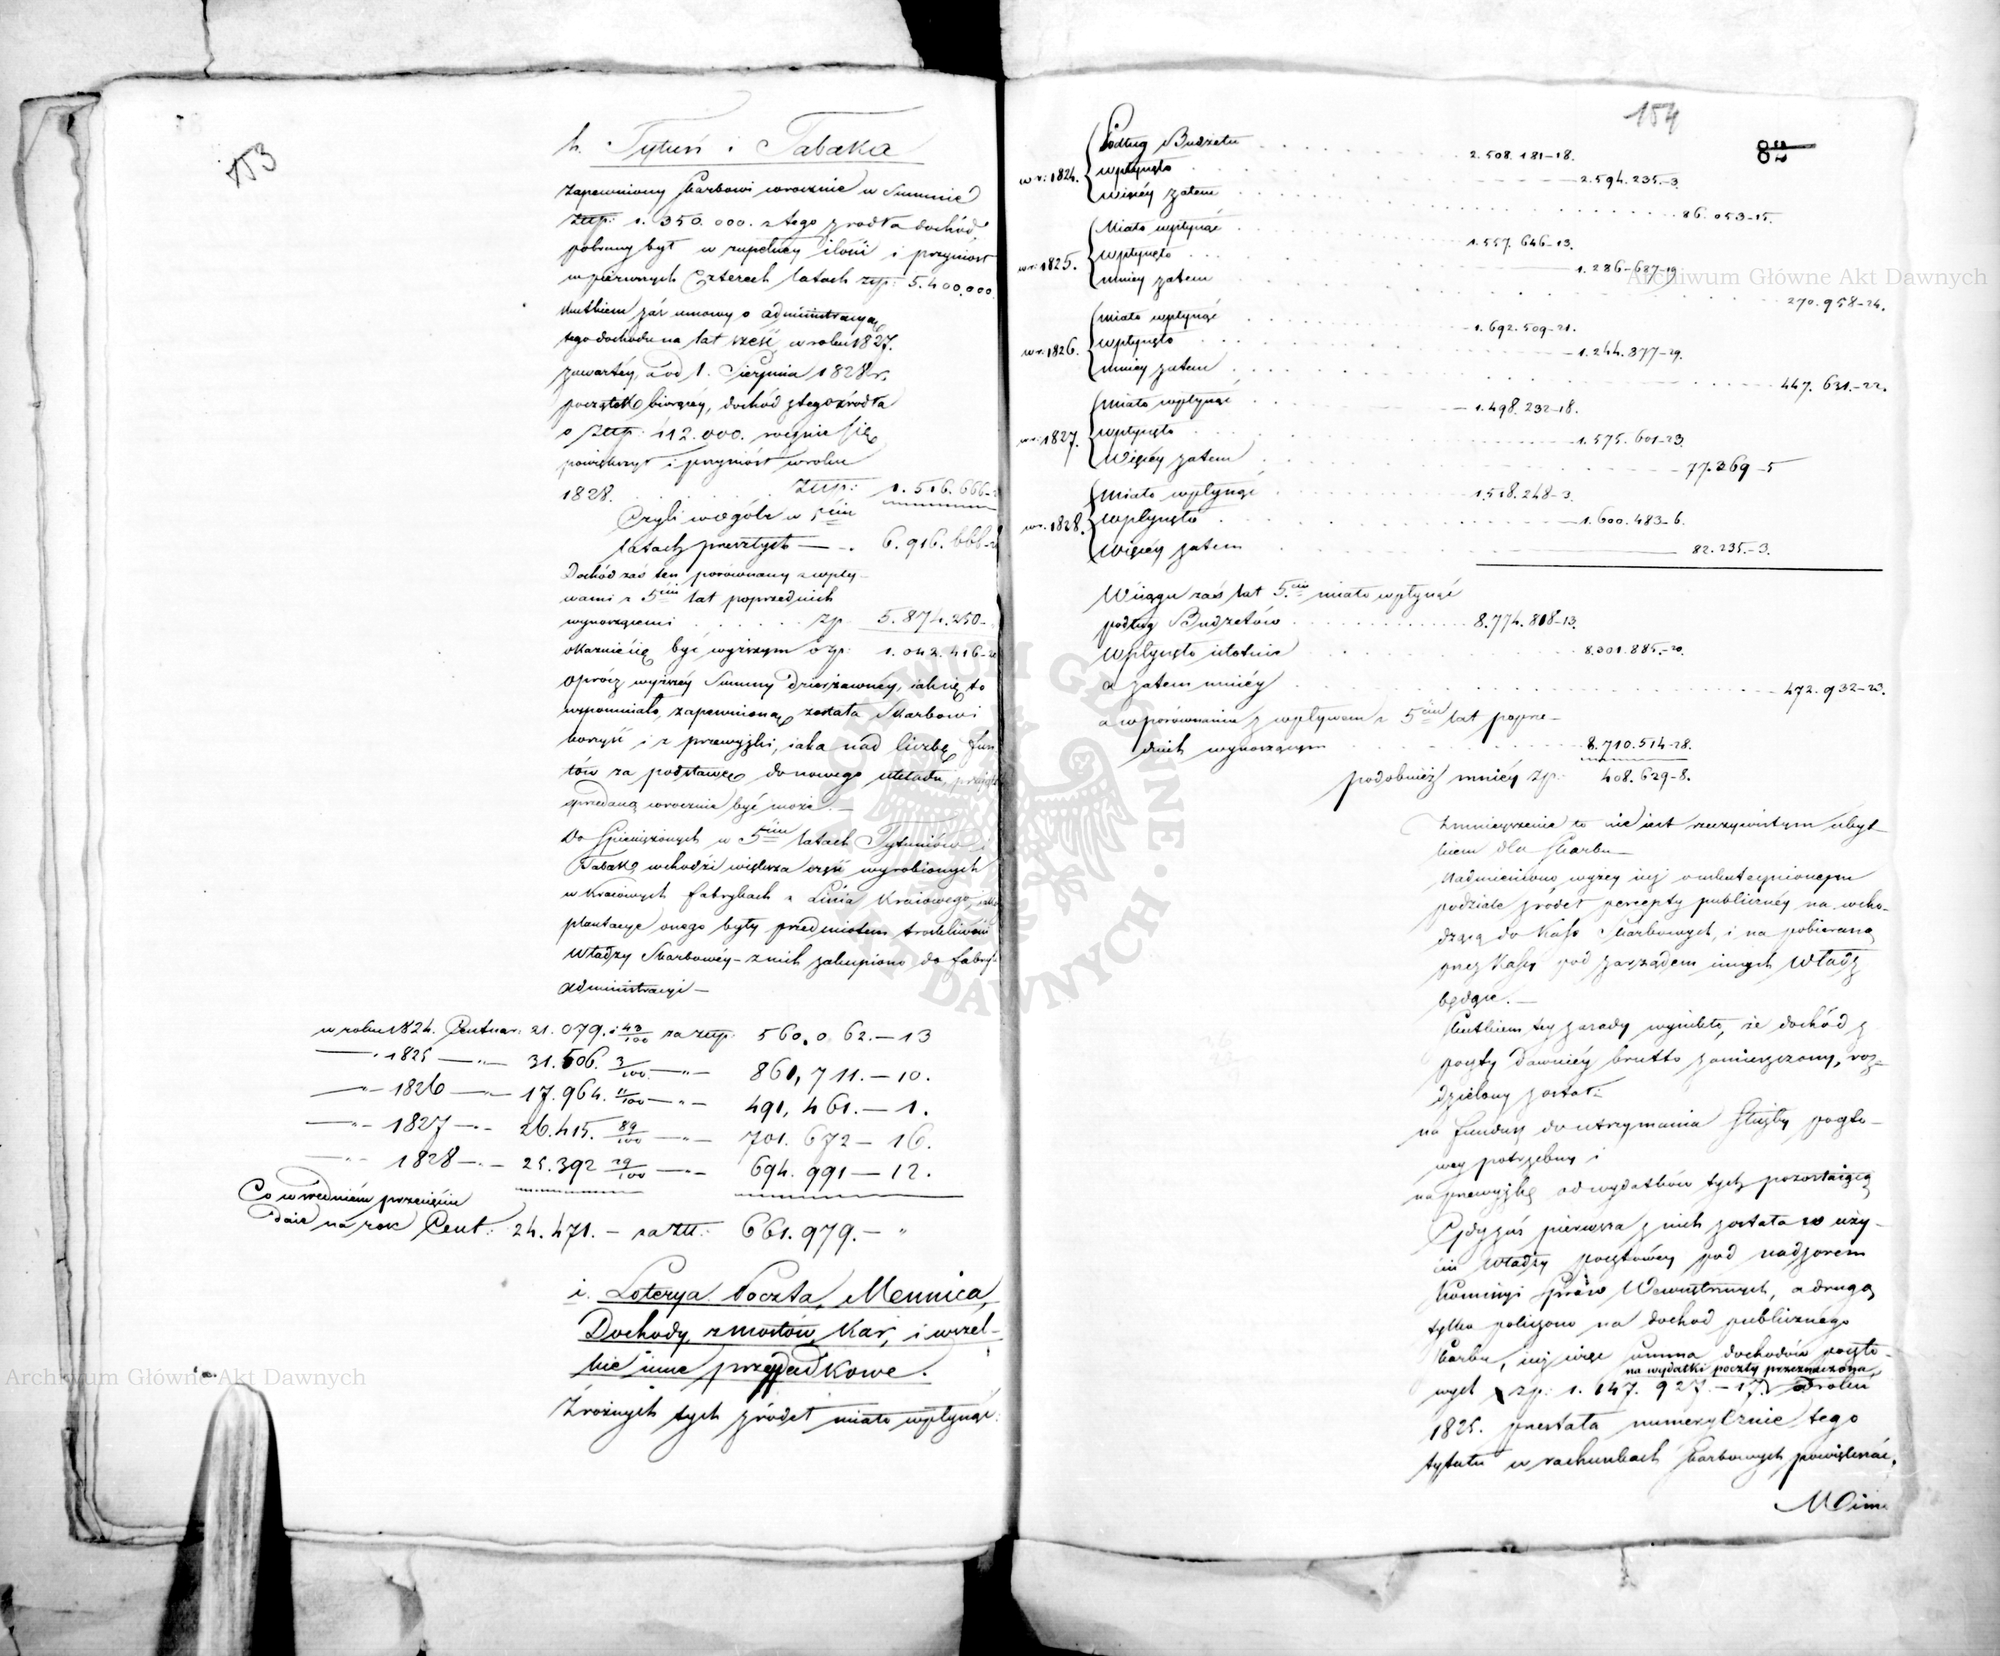 153
h. Tytuń i Tabaka
Zapewniony Skarbowi corocznie w Summie
Złtp: 1.350.000. z tego zrodła dochód
pobrany był w zupełney ilości i przyniósł
w pierwszych Czterech latach złp: 5.400.000.
Skutkiem zaś umowy o administracyą
tego dochodu na lat sześć w roku 1827.
zawartéy, a od 1. Sierpnia 1828 r.
początek biorącéy, dochód z tego źródła
o Złtp: 112.000. rocznie się
powiększył i przyniósł w roku
1828. . . . . . Złtp: 1.516.666-
Czyli w ogóle w 5ciu
latach przeszłych — . 6.916.666-
Dochód zaś ten porównany z wpły-
wami z 5ciu lat poprzednich
wynoszącemi . . . . . zp. 5.874.250-
okaznie się być wyższym o zp: 1.042.416-
Oprócz wyższéy Summy Dzierżawnéy, iak się to
wspomniało, zapewnioną została Skarbowi
korzyść i z przewyżki, iaka nad liczbę fun
tów za podstawę do nowego układu
sprzedaną corocznie być może.—
Do Spieniężonych w 5ciu latach Tytuniów i
Tabak, wchodzi większa część wyrobionych
w Kraiowych fabrykach z Liścia Kraiowego,
plantacye onego były przedmiotem troskliwości
Władzy Skarbowey – z nich zakupiono do fabryk
administracyi —
w roku 1824. Centnar: 21.079. i 43/100 za złtp: 560.062.—13
—„ 1825 —„— 31.506. 3/100 —„— 861,711.—10.
—„— 1826 —„— 17.964. 11/100 —„— 491,461.—1.
—„— 1827 —„— 26.415. 89/100 —„— 701.672—16.
—„— 1828 —„— 25.392 29/100 —„— 694.991—12.
Co w średniém przecięciu
daie na rok Cent: 24.471.— za Złt: 661.979.— „
i. Loterya Poczta, Mennica,
Dochody z mostów, Kar, i wszel-
kie inne przypadkowe.
Z różnych tych źródeł miało wpłynąć:
154
82
w r: 1824. Podług Budżetu . . . . 2.508.181-18.
wpłynęło . . . . 2.594.235.-3
więcéy zatem . . . . 86.053-15.
w r: 1825. Miało wpłynąć . . . . 1.557.646-13.
wpłynęło . . . 1.286-687-19
mniéy zatem . . . . 270.958-24.
w r. 1826. miało wpłynąć . . . . 1.692.509-21.
wpłynęło . . . . 1.244.877-29.
mniéy zatem . . . . 447.631.-22.
w r: 1827. miało wpłynąć . . . . 1.498.232-18.
wpłynęło . . . . 1.575.601-23
Więcéy zatem . . . . 77.369-5
w r. 1828. miało wpłynąć . . . . 1.518.248-3.
wpłynęło . . . . 1.600.483-6.
więcéy zatem . . . . 82.235.-3.
W ciągu zaś lat 5ciu miało wpłynąć
podług Budżetów . . . . 8.774.818-13.
Wpłynęło istotnie . . . . 8.301.885.-20.
a zatem mniéy . . . . 472.932-23.
a w porównaniu z wpływem z 5ciu lat poprze-
dnich wynoszącym . . . . 8.710.514-28.
podobnież mniéy zp: 408.629-8.
Zmnieyszenie to nie iest rzeczywistym ubyt-
kiem dla Skarbu—
Nadmieniono wyzey iuż o uskutecznionym
podziale źródeł percepty publicznéy na wcho-
dzącą do Kass Skarbowych, i na pobieraną
przez Kassy pod zarządem innych Władz
będące.—
Skutkiem tey zasady wynikło, że dochód z
poczty dawniéy brutto zamieszczony, roz-
dzielony został:
na fundusz do utrzymania Służby poczto-
wey potrzebny i
na przewyżkę od wydatków tych pozostaiącą
Gdy zaś pierwsza z nich została w uży-
ciu Władzy pocztowéy pod nadzorem
Kommissyi Spraw Wewnętrznych, a drugą
tylko policzono na dochód publicznego
Skarbu, iuż więc summa dochodów poczto-
na wydatki poczty przeznaczona,
wych zp: 1.147.927.-17. od roku
1825. przestała numerycznie tego
tytułu w rachunkach Skarbowych powiększać,
Mimo
Archiwum Główne Akt Dawnych
Archiwum Główne Akt Dawnych
ARCHIWUM GŁÓWNE AKT DAWNYCH